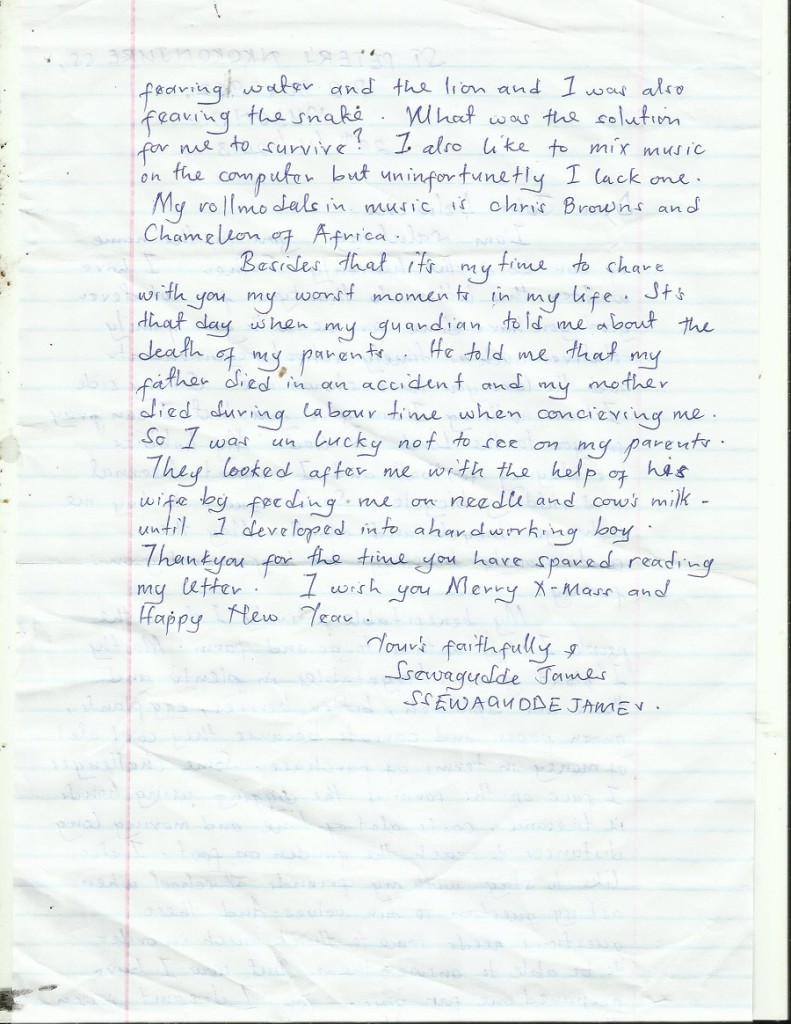 fearing water and the lion and I was also
fearing the snake. What was the solution
for me to survive? I also like to mix music
on the computer but uninfortunetly I lack one.
My rollmodals in music is chris Browns and
Chameleon of Africa.
Besides that it's my time to share
with you my worst moments in my life. It's
that day when my guardian told me about the
death of my parents. He told me that my
father died in an accident and my mother
died during labour time when concieving me.
So I was un lucky not to see on my parents.
They looked after me with the help of his
wife by feeding me on needle and cow's milk -
until I developed into ahardworking boy.
Thankyou for the time you have spared reading
my letter. I wish you Merry X-Mass and
Happy New Year.
Your's faithfully
Ssewagudde James
SSEWAGUDDE JAMES.